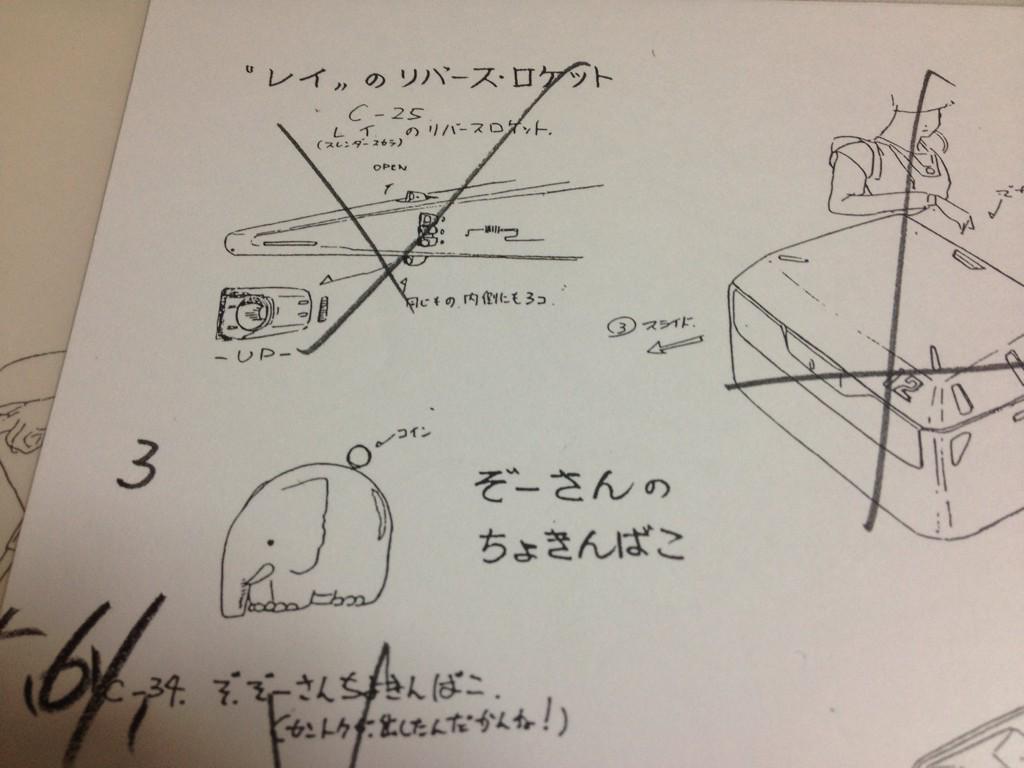 "レイ„のリバース・ロケット
C-25
レイのリバースロケット.
OPEN
同じもの.内側にも3コ.
-UP-
③ スライド.
2
3
コイン
ぞーさんの
ちょきんばこ
C-34. ぞ.ぞーさんちょきんばこ.
(カントクが.出したんだかんね!)